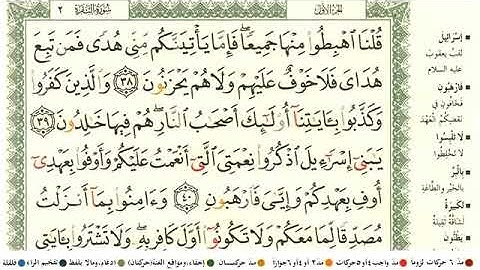 الجزء الأول
سورة البقرة
٢
قُلْنَا اهْبِطُوا مِنْهَا جَمِيعًا فَإِمَّا يَأْتِيَنَّكُم مِّنِّي هُدًى فَمَن تَبِعَ
هُدَايَ فَلَا خَوْفٌ عَلَيْهِمْ وَلَا هُمْ يَحْزَنُونَ ٣٨ وَالَّذِينَ كَفَرُوا
وَكَذَّبُوا بِآيَاتِنَا أُولَٰئِكَ أَصْحَابُ النَّارِ هُمْ فِيهَا خَالِدُونَ ٣٩
يَٰبَنِي إِسْرَائِيلَ اذْكُرُوا نِعْمَتِيَ الَّتِي أَنْعَمْتُ عَلَيْكُمْ وَأَوْفُوا بِعَهْدِي
أُوفِ بِعَهْدِكُمْ وَإِيَّايَ فَارْهَبُونِ ٤٠ وَءَامِنُوا بِمَا أَنزَلْتُ
مُصَدِّقًا لِّمَا مَعَكُمْ وَلَا تَكُونُوا أَوَّلَ كَافِرٍ بِهِ وَلَا تَشْتَرُوا بِآيَاتِي
إسرائيل
لقب يعقوب
عليه السلام
فارهبون
فخافون في
نقضكم العهد
لا تلبسوا
لا تخلطوا
بالبر
بالخير والطاعة
لكبيرة
لشاقة ثقيلة
يظنون
مد ٦ حركات لزوما مد ٢ أو ٤ أو ٦ جوازا
مد واجب ٤ أو ٥ حركات مد حركتان
إخفاء، ومواقع الغنة (حركتان)
ادغام، ومالا يلفظ
تفخيم الراء
قلقلة